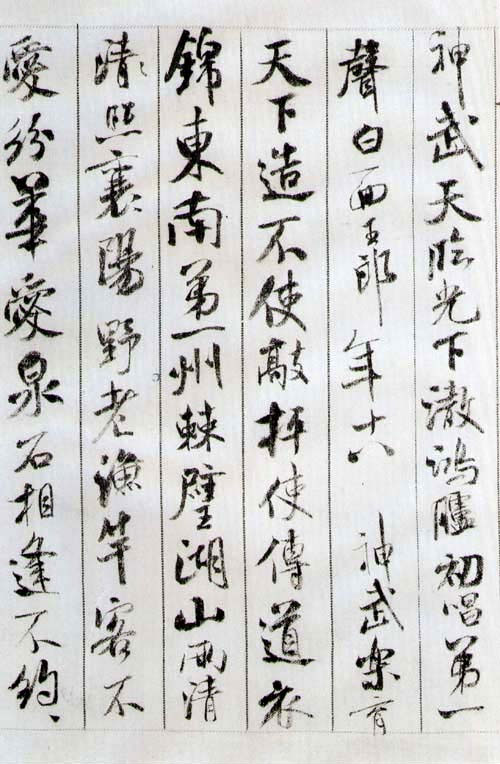 神武天臨光下澈鴻臚初唱第一
聲白面王郎年十八 神武樂育
天下造不使敲枰使傳道衣
錦東南第一州棘璧湖山兩清
清照襄陽野老漁竿客不
愛紛華愛泉石相逢不約、